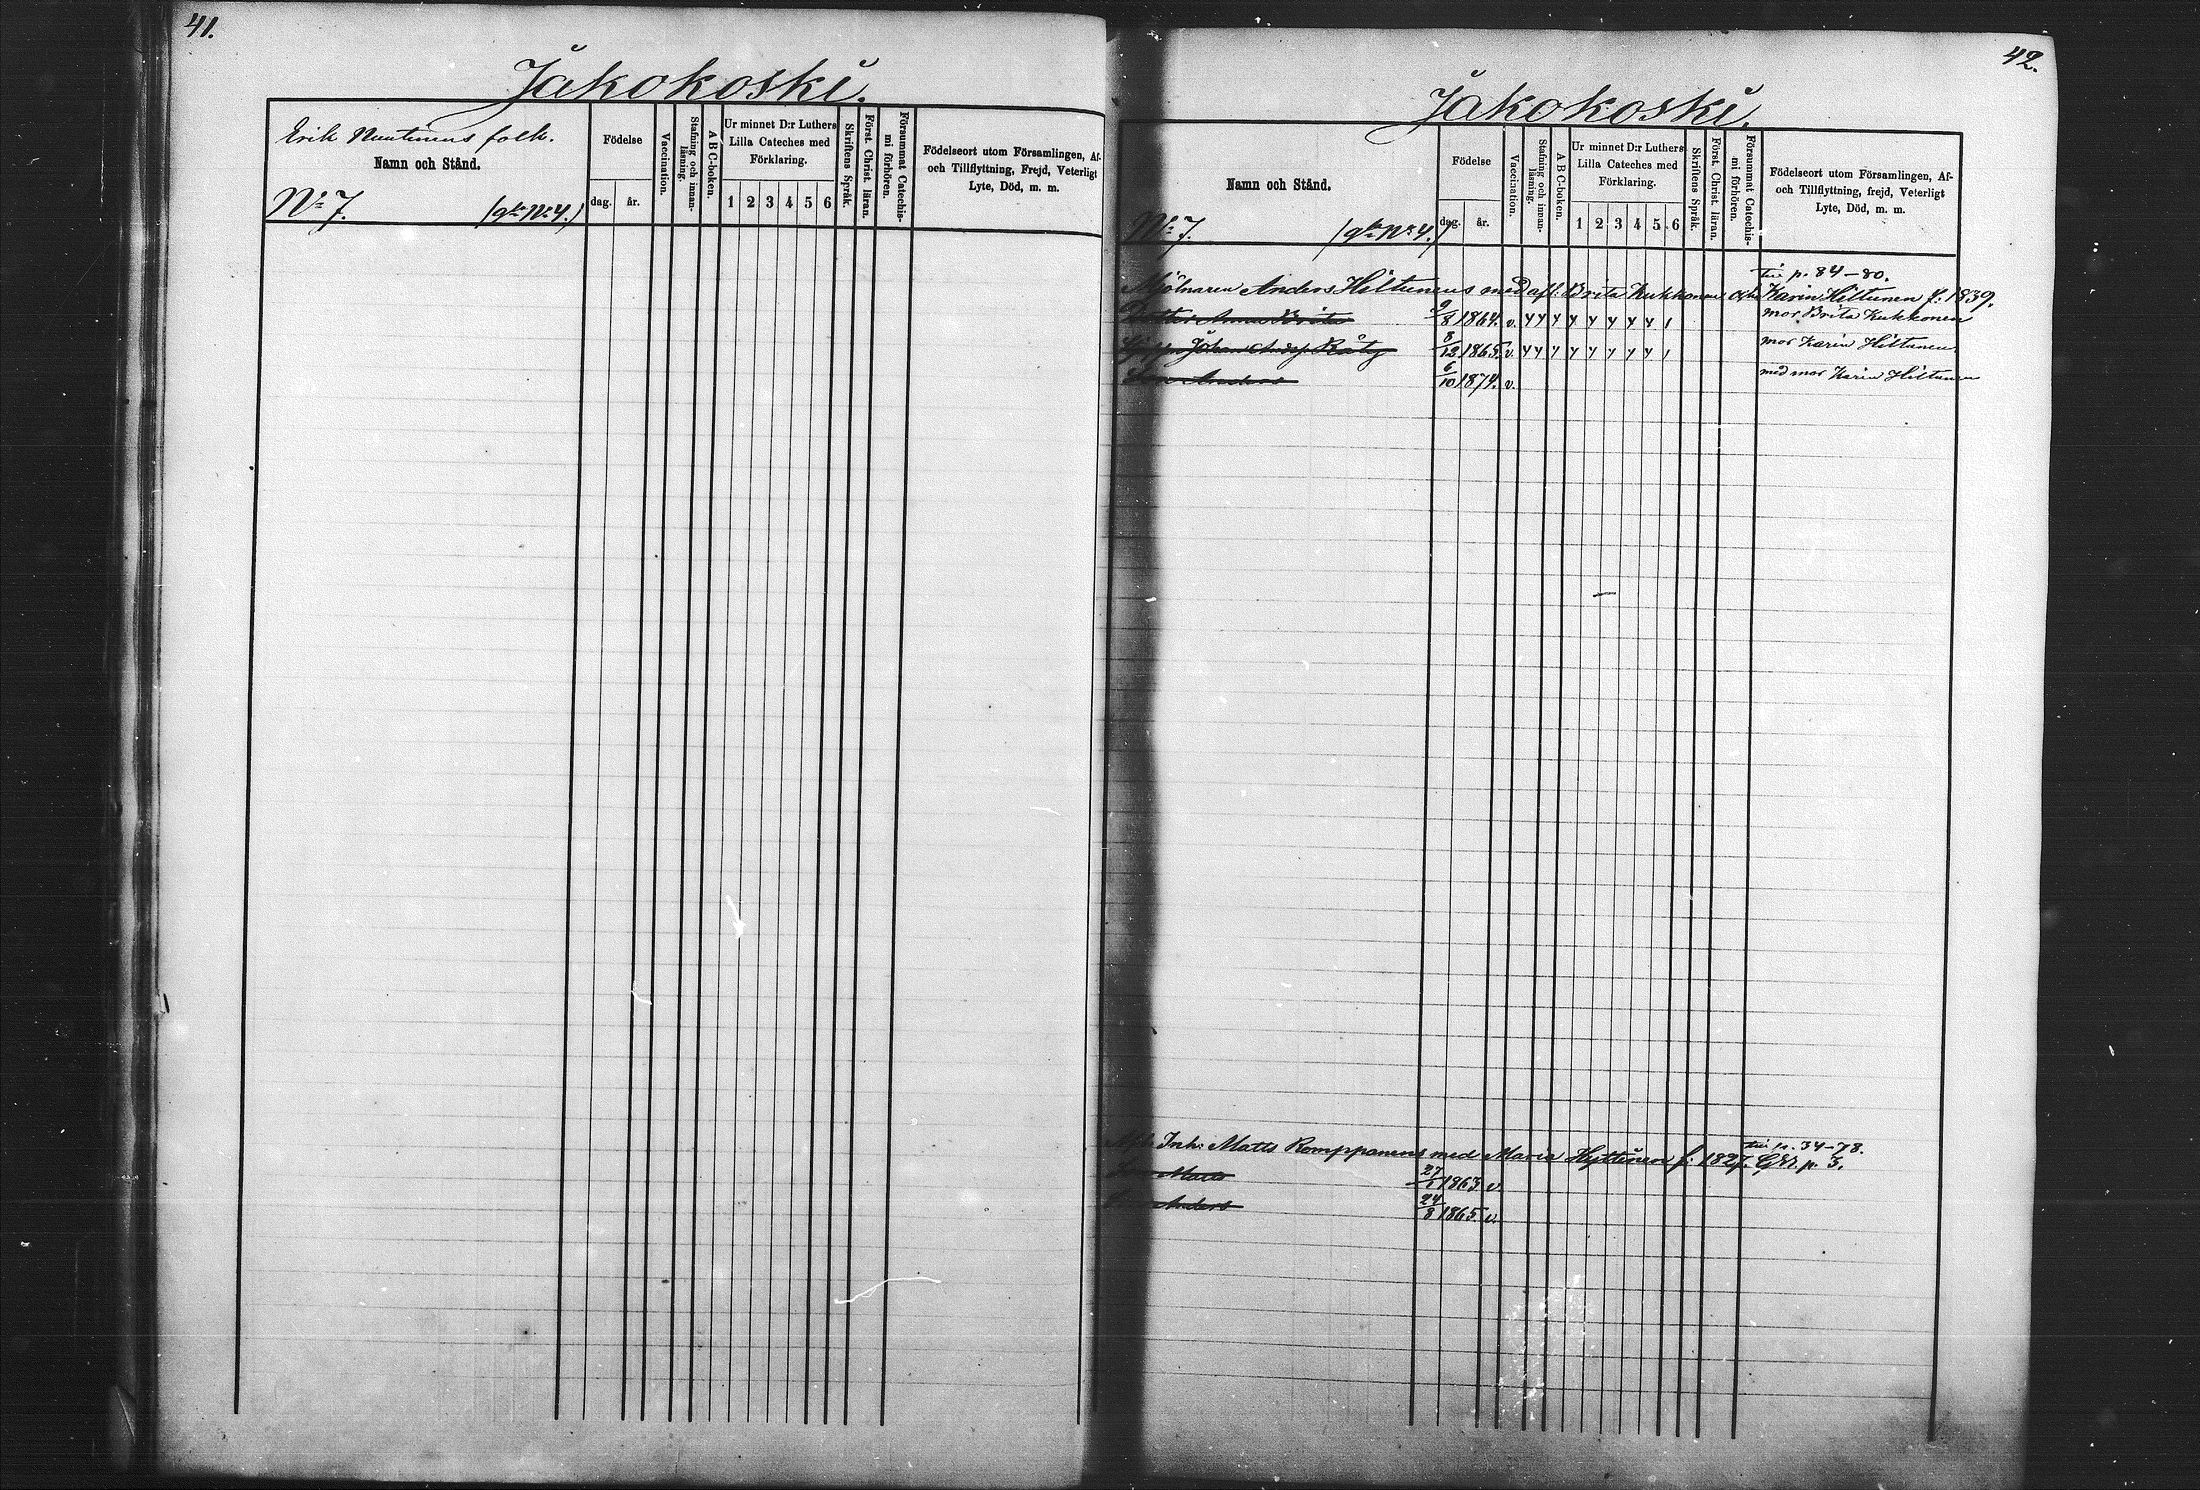 41.
Jakokoski.
Erik Nuutinens folk.
Namn och Stånd.
Nr 7. (gla Nr 4.)
Födelse
dag. år.
Vaccination.
Stafning och innan-
läsning.
A B C-boken.
Ur minnet D:r Luthers
Lilla Cateches med
Förklaring.
1 2 3 4 5 6
Skriftens Språk.
Först. Christ. läran.
Försummat Catechis-
mi förhören.
Födelseort utom Församlingen, Af-
och Tillflyttning, Frejd, Veterligt
Lyte, Död, m. m.
42.
Jakokoski.
Namn och Stånd.
Nr 7. (gla Nr 4.)
Födelse
dag. år.
Vaccination.
Stafning och innan-
läsning.
A B C-boken.
Ur minnet D:r Luthers
Lilla Cateches med
Förklaring.
1 2 3 4 5 6
Skriftens Språk.
Först. Christ. läran.
Försummat Catechis-
mi förhören.
Födelseort utom Församlingen, Af-
och Tillflyttning, frejd, Veterligt
Lyte, Död, m. m.
p. 84-80.
Mjölnaren Anders Hiltunens med afl: Brita Kukkonen och Karin Hiltunen f: 1839.
Dotter Anna Brita 9/8 1864. v. mor Brita Kukkonen
Johan Räty 8/12 1865. v. mor Karin Hiltunen
Son Anders 6/10 1874. v. med mor Karin Hiltunen
p. 34-78.
Inh: Matts Romppanens med Maria Hyttinen f: 1827. p. 3.
Matts 27/1 1863 v.
Anders 24/8 1865. v.